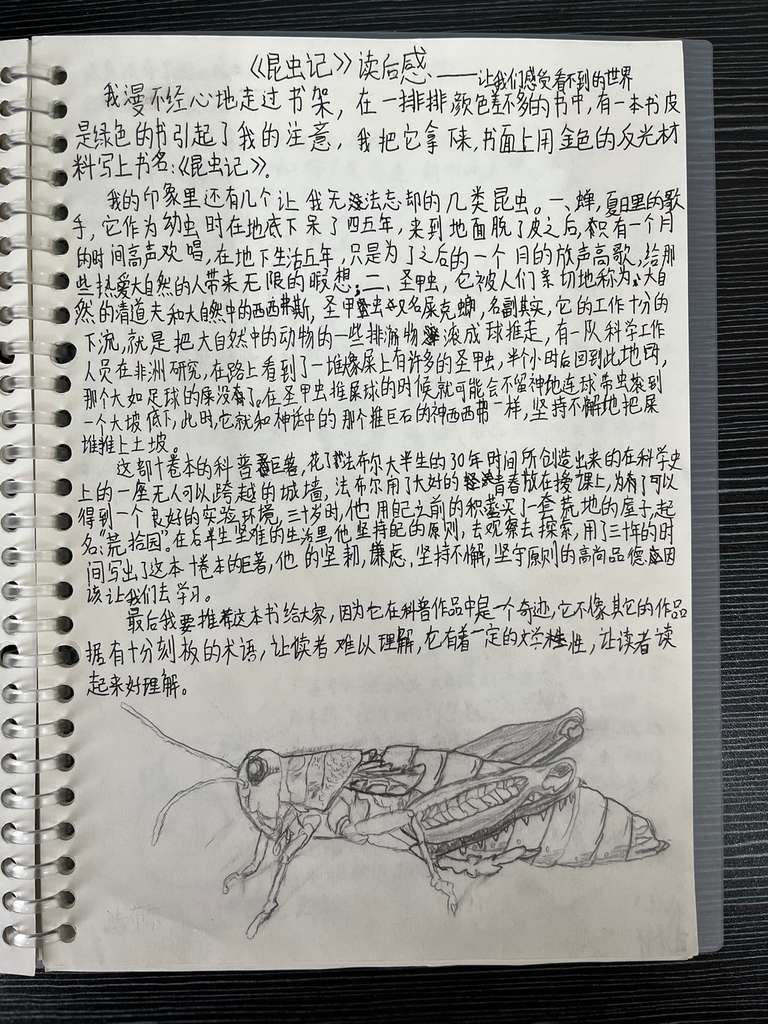 《昆虫记》读后感——让我们感受看不到的世界
我漫不经心地走过书架，在一排排颜色差不多的书中，有一本书皮
是绿色的书引起了我的注意，我把它拿下来，书面上用金色的反光材
料写上书名：《昆虫记》。
我的印象里还有几个让我无法忘却的几类昆虫。一、蝉，夏日里的歌
手，它作为幼虫时在地底下呆了四五年，来到地面脱了皮之后，只有一个月
的时间高声欢唱，在地下生活五年，只是为了之后的一个月的放声高歌，给那
些热爱大自然的人带来无限的暇想；二、圣甲虫，它被人们亲切地称为：大自
然的清道夫和大自然中的西西弗斯，圣甲虫又名屎克螂，名副其实，它的工作十分的
下流，就是把大自然中的动物的一些排泄物滚成球推走，有一队科学工作
人员在非洲研究，在路上看到了一堆像屎上有许多的圣甲虫，半个小时后回到此地时，
那个大如足球的屎没有了。在圣甲虫推屎球的时候就可能会不留神地连球带虫滚到
一个大坡底下，此时，它就和神话中的那个推巨石的神西西弗一样，坚持不懈地把屎
堆推上土坡。
这部十卷本的科普巨著，花了法布尔大半生的30年时间所创造出来的在科学史
上的一座无人可以跨越的城墙，法布尔用了大好的青春放在授课上，为了可以
得到一个良好的实验环境，三十岁时，他用自己之前的积蓄买了一套荒地的屋子，起
名：“荒拾园”。在后半生坚难的生活里，他坚持自己的原则，去观察去探索，用了三十年的时
间写出了这本十卷本的巨著，他的坚韧，谦虑，坚持不懈，坚守原则的高尚品德应因
该让我们去学习。
最后我要推荐这本书给大家，因为它在科普作品中是一个奇迹，它不像其它的作品
据有十分刻板的术语，让读者难以理解，它有着一定的文学性，让读者读
起来好理解。